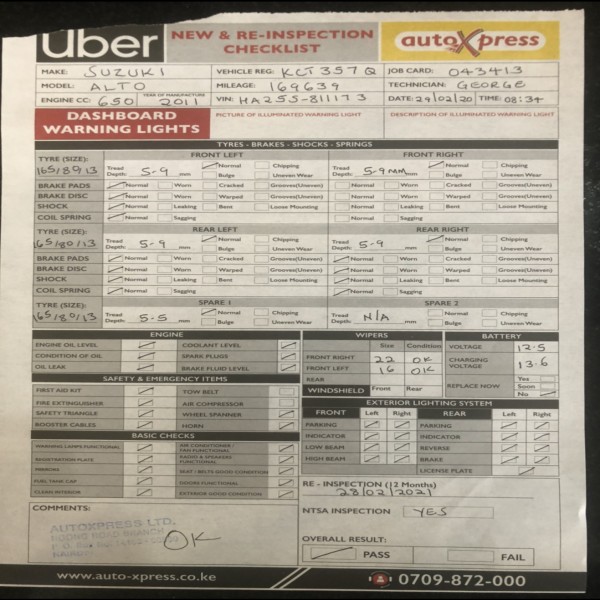 Uber NEW & RE-INSPECTION CHECKLIST autoXpress
MAKE: SUZUKI VEHICLE REG: KCJ 357Q JOB CARD: 043413
MODEL: ALTO MILEAGE: 169639 TECHNICIAN: GEORGE
ENGINE CC: 650 YEAR OF MANUFACTURE 2011 VIN: HA25S-811173 DATE: 29/02/20 TIME: 08:34
DASHBOARD WARNING LIGHTS PICTURE OF ILLUMINATED WARNING LIGHT DESCRIPTION OF ILLUMINATED WARNING LIGHT
TYRES - BRAKES - SHOCKS - SPRINGS
FRONT LEFT FRONT RIGHT
TYRE (SIZE): 165/80/13 Tread Depth: 5-9 mm Normal Chipping Tread Depth: 5-9mm Normal Chipping
Bulge Uneven Wear Bulge Uneven Wear
BRAKE PADS Normal Worn Cracked Grooves(Uneven) Normal Worn Cracked Grooves(Uneven)
BRAKE DISC Normal Worn Warped Grooves(Uneven) Normal Worn Warped Grooves(Uneven)
SHOCK Normal Leaking Bent Loose Mounting Normal Leaking Bent Loose Mounting
COIL SPRING Normal Sagging Normal Sagging
REAR LEFT REAR RIGHT
TYRE (SIZE): 165/80/13 Tread Depth: 5-9 mm Normal Chipping Tread Depth: 5-9 mm Normal Chipping
Bulge Uneven Wear Bulge Uneven Wear
BRAKE PADS Normal Worn Cracked Grooves(Uneven) Normal Worn Cracked Grooves(Uneven)
BRAKE DISC Normal Worn Warped Grooves(Uneven) Normal Worn Warped Grooves(Uneven)
SHOCK Normal Leaking Bent Loose Mounting Normal Leaking Bent Loose Mounting
COIL SPRING Normal Sagging Normal Sagging
SPARE 1 SPARE 2
TYRE (SIZE): 165/80/13 Tread Depth: 5-5 mm Normal Chipping Tread Depth: N/A mm Normal Chipping
Bulge Uneven Wear Bulge Uneven Wear
ENGINE
ENGINE OIL LEVEL COOLANT LEVEL
CONDITION OF OIL SPARK PLUGS
OIL LEAK BRAKE FLUID LEVEL
SAFETY & EMERGENCY ITEMS
FIRST AID KIT TOW BELT
FIRE EXTINGUISHER AIR COMPRESSOR
SAFETY TRIANGLE WHEEL SPANNER
BOOSTER CABLES HORN
BASIC CHECKS
WARNING LAMPS FUNCTIONAL AIR CONDITIONER / FAN FUNCTIONAL
REGISTRATION PLATE RADIO & SPEAKERS FUNCTIONAL
MIRRORS SEAT / BELTS GOOD CONDITION
FUEL TANK CAP DOORS FUNCTIONAL
CLEAN INTERIOR EXTERIOR GOOD CONDITION
COMMENTS:
AUTOXPRESS LTD.
NGONG ROAD BRANCH
NAIROBI
OK
WIPERS
Size Condition
FRONT RIGHT 22 OK
FRONT LEFT 16 OK
REAR
WINDSHIELD Front Rear
BATTERY
VOLTAGE 12.5
CHARGING VOLTAGE 13.6
REPLACE NOW Yes Soon No
EXTERIOR LIGHTING SYSTEM
FRONT Left Right REAR Left Right
PARKING PARKING
INDICATOR INDICATOR
LOW BEAM REVERSE
HIGH BEAM BRAKE
LICENSE PLATE
RE - INSPECTION (12 Months)
28/02/2021
NTSA INSPECTION YES
OVERALL RESULT:
PASS FAIL
www.auto-xpress.co.ke 0709-872-000